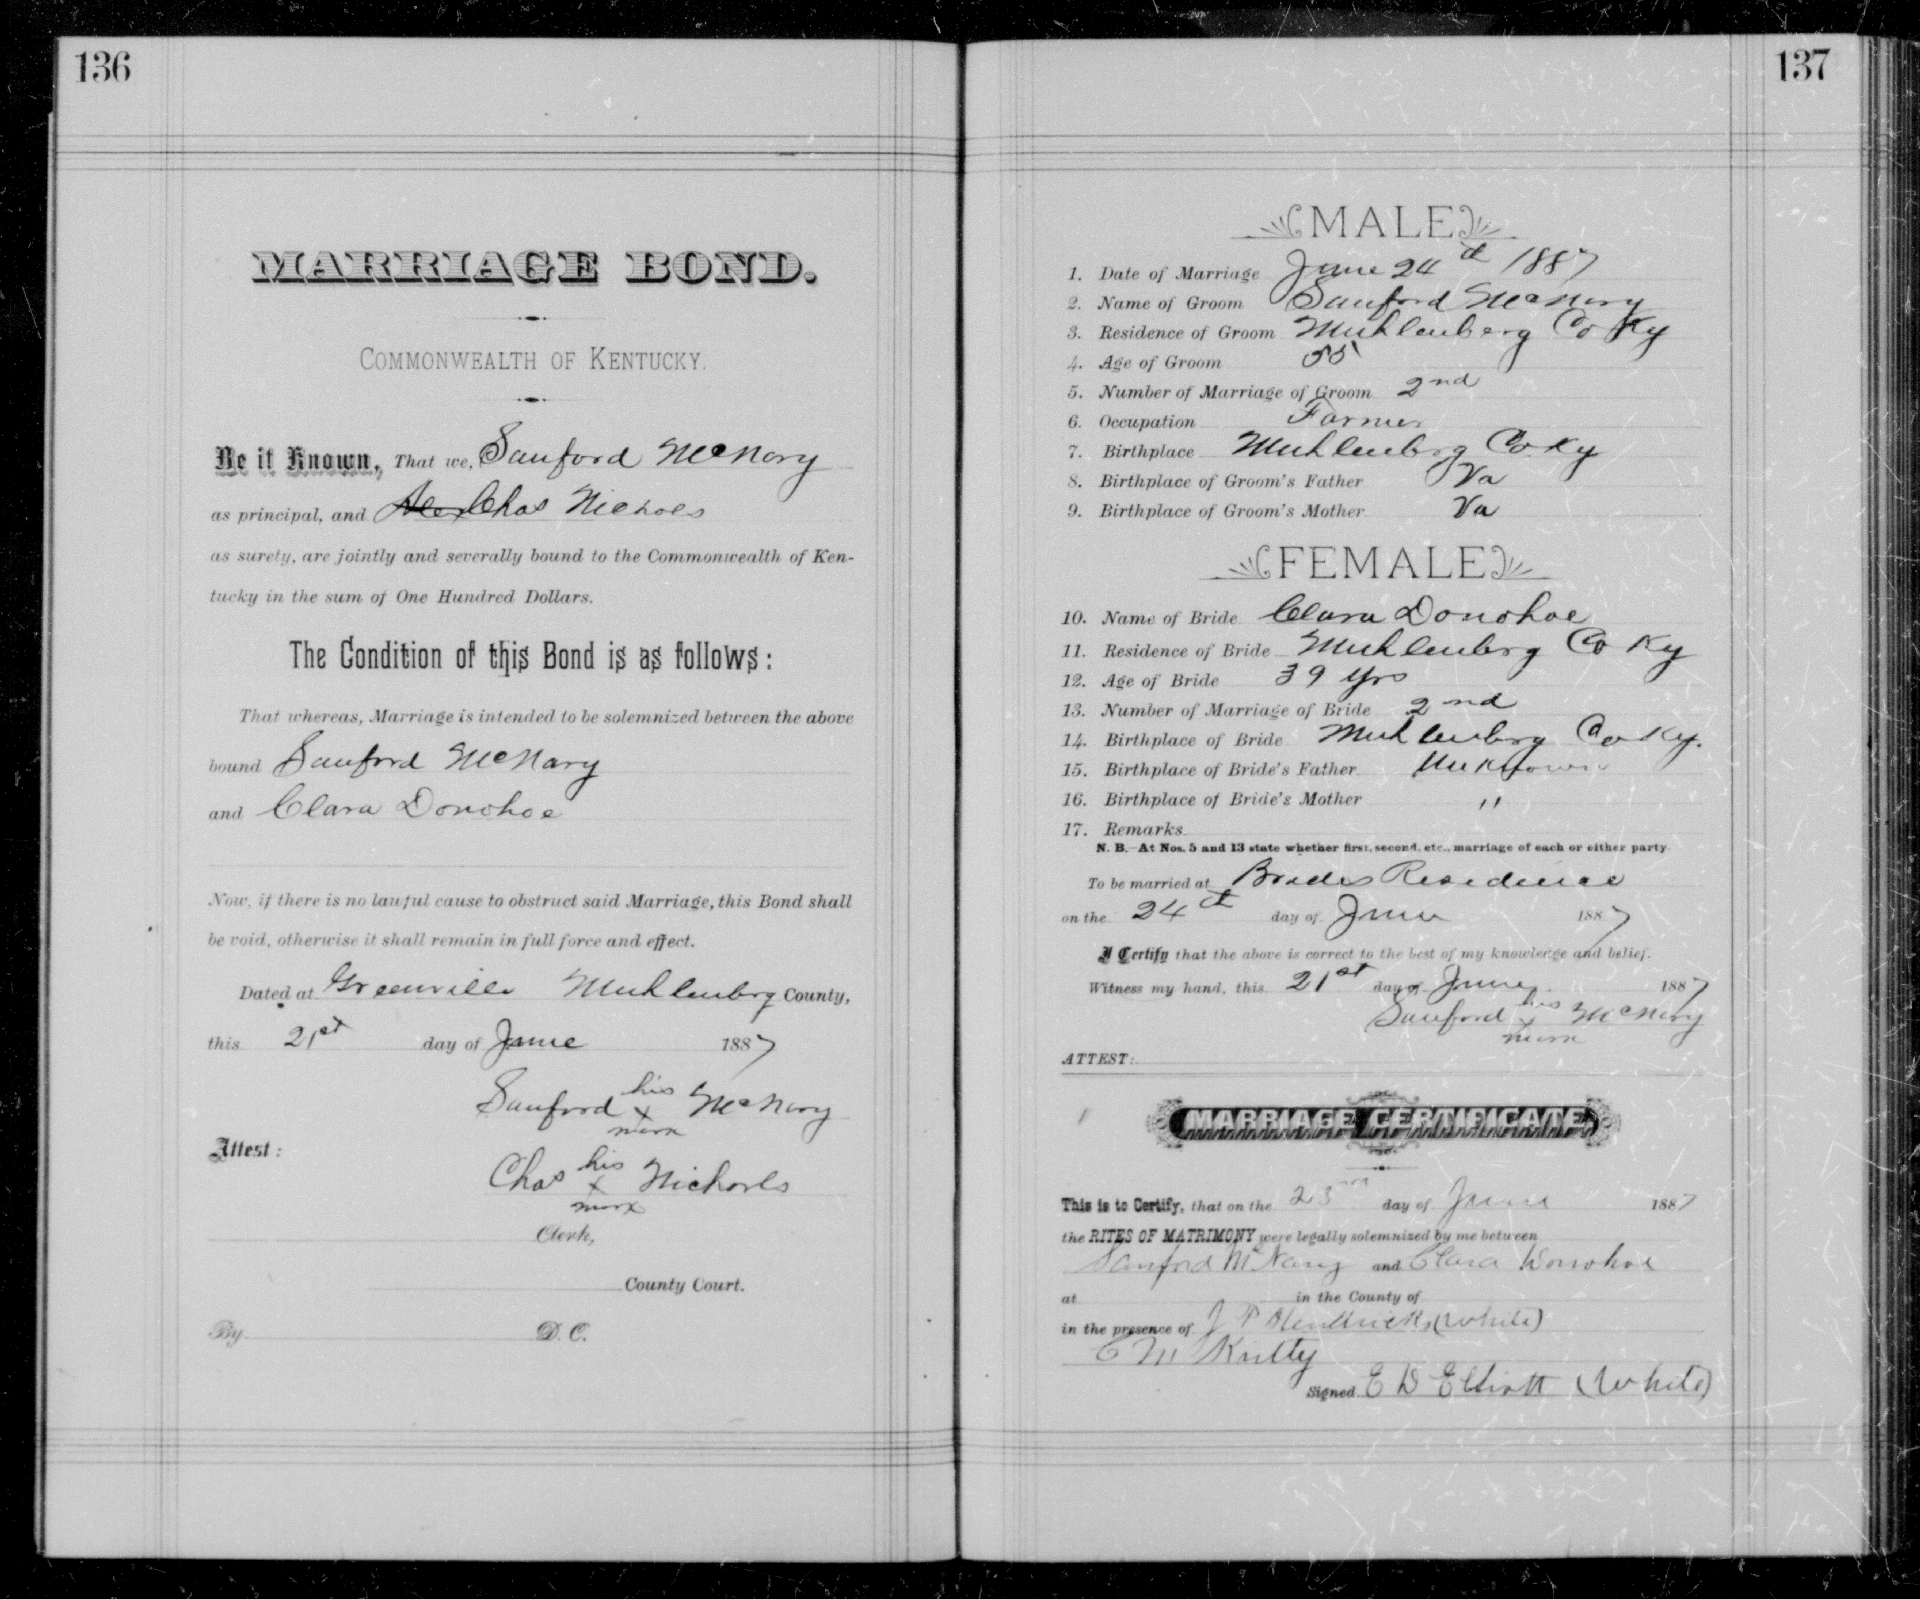 136
MARRIAGE BOND.
COMMONWEALTH OF KENTUCKY.
Be it Known, That we, Sanford McNary
as principal, and Chas Nichols
as surety, are jointly and severally bound to the Commonwealth of Ken-
tucky in the sum of One Hundred Dollars.
The Condition of this Bond is as follows:
That whereas, Marriage is intended to be solemnized between the above
bound Sanford McNary
and Clara Donohoe
Now, if there is no lawful cause to obstruct said Marriage, this Bond shall
be void, otherwise it shall remain in full force and effect.
Dated at Greenville Muhlenberg County,
this 21st day of June 1887
Sanford his x mark McNary
Attest:
Chas his x mark Nichorls
Clerk,
County Court.
By D. C.
137
MALE
1. Date of Marriage June 24th 1887
2. Name of Groom Sanford McNary
3. Residence of Groom Muhlenberg Co Ky
4. Age of Groom 55
5. Number of Marriage of Groom 2nd
6. Occupation Farmer
7. Birthplace Muhlenberg Co Ky
8. Birthplace of Groom's Father Va
9. Birthplace of Groom's Mother Va
FEMALE
10. Name of Bride Clara Donohoe
11. Residence of Bride Muhlenberg Co Ky
12. Age of Bride 39 yrs
13. Number of Marriage of Bride 2nd
14. Birthplace of Bride Muhlenberg Co Ky.
15. Birthplace of Bride's Father Unknown
16. Birthplace of Bride's Mother "
17. Remarks
N. B.—At Nos. 5 and 13 state whether first, second, etc., marriage of each or either party
To be married at Brides Residence
on the 24th day of June 1887
I Certify that the above is correct to the best of my knowledge and belief.
Witness my hand, this 21st day of June 1887
Sanford his x mark McNary
ATTEST:
MARRIAGE CERTIFICATE
This is to Certify, that on the 23 day of June 1887
the RITES OF MATRIMONY were legally solemnized by me between
Sanford McNary and Clara Donohoe
at in the County of
in the presence of J P Hendricks (White)
C M
Signed E D Elliott (White)